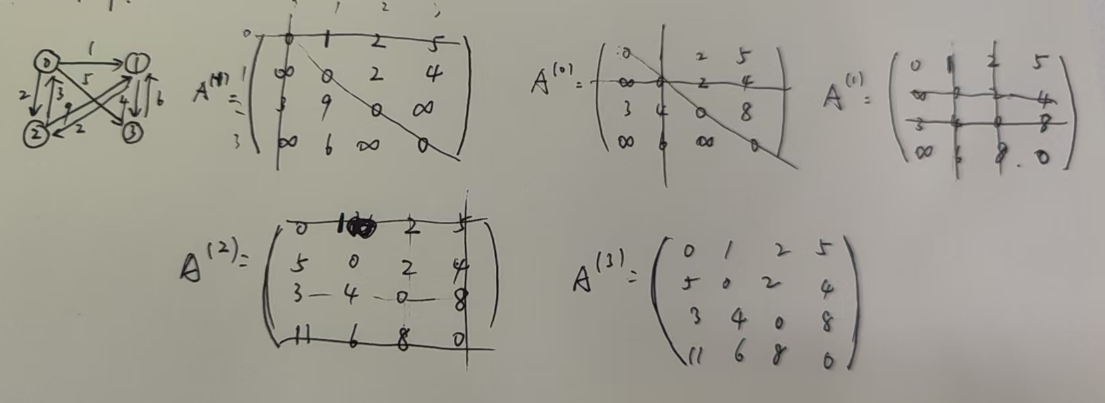 0 1 2 3
0 1 5 2 3 9 2 4 6 2 3
A⁽⁻¹⁾=
0 0 1 2 5
1 ∞ 0 2 4
3 9 0 ∞
3 ∞ 6 ∞ 0
A⁽⁰⁾=
0 2 5
∞ 0 2 4
3 4 0 8
∞ 6 ∞ 0
A⁽¹⁾=
0 1 2 5
∞ 0 2 4
3 4 0 8
∞ 6 8 0
A⁽²⁾=
0 1 2 5
5 0 2 4
3 4 0 8
11 6 8 0
A⁽³⁾=
0 1 2 5
5 0 2 4
3 4 0 8
11 6 8 0